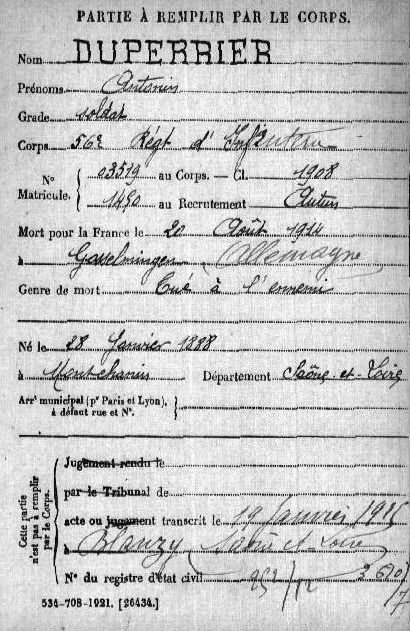 PARTIE À REMPLIR PAR LE CORPS.
Nom DUPERRIER
Prénoms Antonin
Grade soldat
Corps 56e Régt d'Infanterie
N° Matricule. { 03519 au Corps. — Cl. 1908
1450 au Recrutement Autun
Mort pour la France le 20 Août 1914
à Gosselmingen (Allemagne
Genre de mort Tué à l'ennemi
Né le 28 Janvier 1888
à Montchanin Département Saône-et-Loire
Arrt municipal (pr Paris et Lyon), à défaut rue et N°. }
Cette partie n'est pas à remplir par le Corps.
Jugement rendu le
par le Tribunal de
acte ou jugement transcrit le 19 Janvier 1915
à Blanzy (Saône et Loire
N° du registre d'état civil
534-708-1921. [26434.]